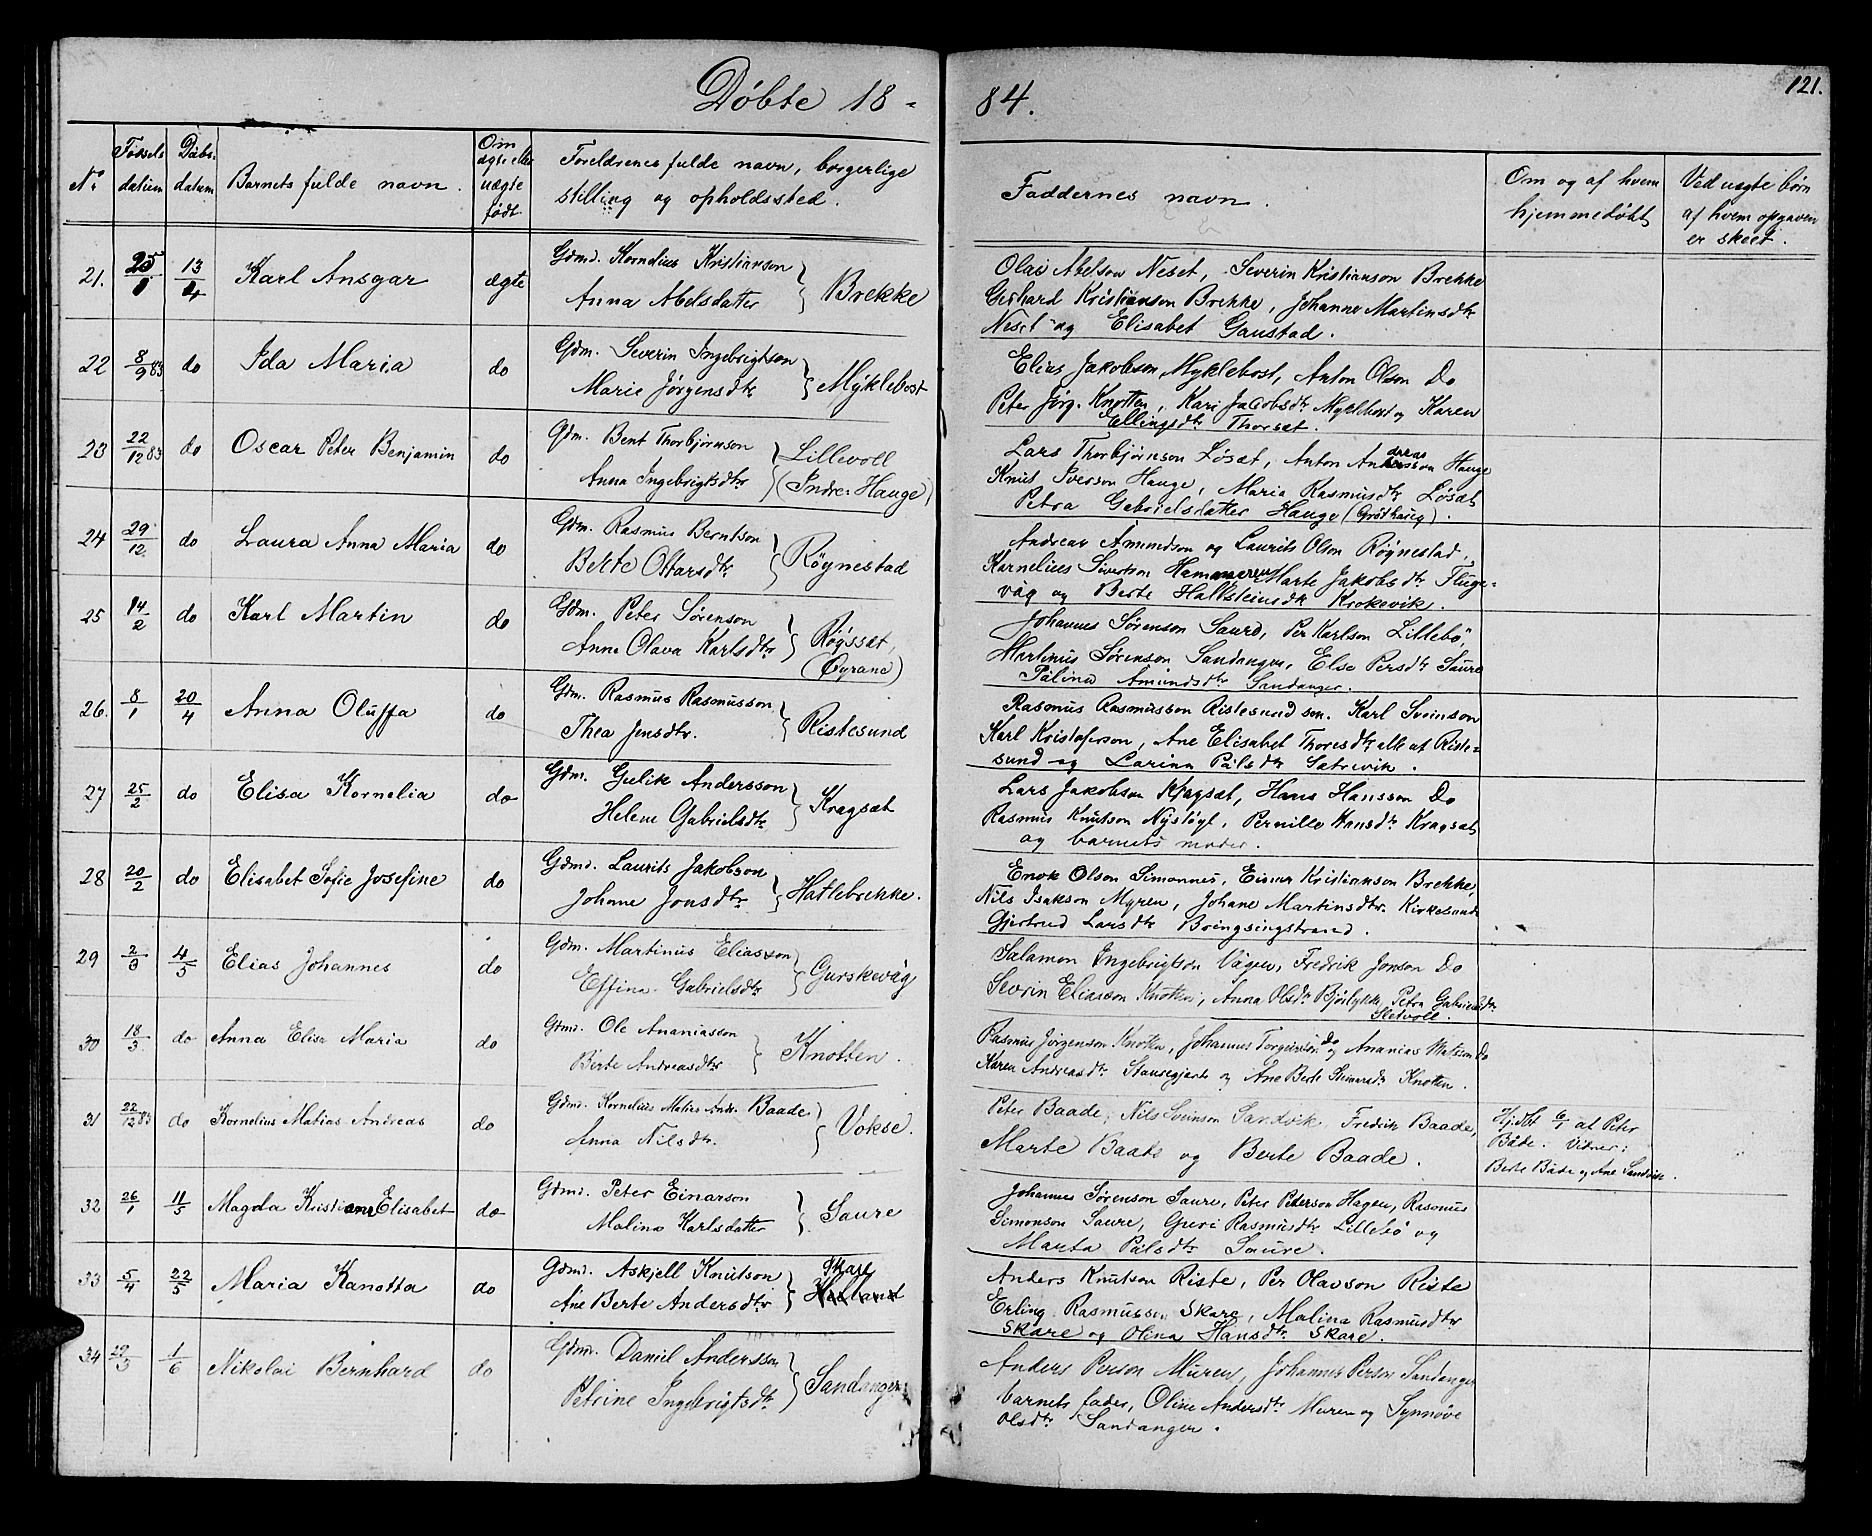 Døbte 18-84.
121.
No
Fødsels datum
Daabs- datum
Barnets fulde navn.
Om ægte eller uægte født
Forældrenes fulde navn, borgerlige stilling og opholdssted.
Faddernes navn.
Om og af hvem hjemmedøbt
Ved uægte børn af hvem opgaven er skeet.
21. 25/1 13/4 Karl Ansgar ægte Gdmd. Kornelius Kristianson
Anna Abelsdatter } Brekke
Olai Abelson Neset, Severin Kristianson Brekke
Gerhard Kristianson Brekke, Johanne Martinsdtr
Neset og Elisabet Gaustad.
22 8/9 83 do Ida Maria do Gdm. Severin Ingebrigtson
Marie Jørgensdtr } Myklebost
Elias Jakobson Myklebost, Anton Olson Do
Peter Jørg. Knotten, Kari Jacobsdtr Myklebost og Karen
Ellingsdtr Thorsæt.
23 22/12 83 do Oscar Peter Benjamin do Gdm. Bent Thorbjørnson
Anna Ingebrigtsdtr } Lillevoll
(Indre-Hauge)
Lars Thorbjørnson Løsæt, Anton Andreasson Hauge
Knut Iverson Hauge, Maria Rasmusdtr Løsæt
Petra Gabrielsdatter Hauge (Grøthaug).
24 29/12 do Laura Anna Maria do Gdm. Rasmus Berntson
Berte Ottarsdtr } Røynestad
Andreas Amundson og Laurits Olson Røynestad,
Kornelius Sivertson Hammeren Marte Jakobsdtr Fluge-
våg og Berte Hallsteinsdtr Krokevik.
25 14/2 do Karl Martin do Gdm. Peter Sørenson
Anne Olava Karlsdtr } Røyssæt,
(Øyrane)
Johannes Sørenson Saure, Per Karlson Lillebø
Martinus Sørenson Sandanger, Else Persdtr Saure
Pålina Amundsdtr Sandanger.
26. 8/1 20/4 Anna Oluffa do Gdm. Rasmus Rasmusson
Thea Jensdtr. } Ristesund
Rasmus Rasmusson Ristesund sen. Karl Sveinson
Karl Kristoferson, Ane Elisabet Thoresdtr alle at Riste-
sund og Larina Pålsdtr Sætrevik.
27 25/2 do Elisa Kornelia do Gdm. Gulik Andersson
Helene Gabrielsdtr } Kragsæt
Lars Jakobson Kragsæt, Hans Hansson Do
Rasmus Knutson Nystøyl, Pernille Hansdtr Kragsæt
og barnets moder.
28 20/2 do Elisabet Sofie Josefine do Gdmd. Laurits Jakobson
Johane Jonsdtr } Hatlebrekke.
Enok Olson Simonnes, Einar Kristianson Brekke,
Nils Isakson Myren, Johane Martinsdtr. Kirkesund
Gjertrud Larsdtr Bringsingstrand.
29 2/3 4/5 Elias Johannes do Gdm. Martinus Eliasson
Effina Gabrielsdtr } Gurskevåg
Salamon Ingebrigtson Vågen, Fredrik Jonson Do
Sevrin Eliasson Knotten, Anna Olsdtr Bjørlykke, Petra Gabrielsdtr
Sletvoll.
30 18/3 do Anna Elise Maria do Gdmd. Ole Ananiasson
Berte Andreasdtr } Knotten.
Rasmus Jørgenson Knotten, Johannes Torgersson Do og Ananias Matsson Do
Karen Andreasdtr Stausegjerde og Ane Berte Gunnarsdtr Knotten.
31 22/12 83 do Kornelius Matias Andreas do Gdmd. Kornelius Matias Andr. Baade
Anna Nilsdtr. } Vokse.
Peter Baade, Nils Sveinson Sandvik, Fredrik Baade,
Marte Baade og Berte Baade.
Hjdbt 6/1 at Peter
Både. Vidner:
Berte Både og Ane Sandvik.
32 26/1 11/5 Magda Kristiane Elisabet do Gdmd. Peter Einarson
Malina Karlsdatter } Saure
Johannes Sørenson Saure, Peter Peterson Hagen, Rasmus
Simonson Saure, Guri Rasmusdtr Lillebø og
Marta Pålsdtr Saure.
33 5/4 22/5 Maria Kanotta do Gdmd. Askjell Knutson
Ane Berte Andersdtr } Skare
Anders Knutson Riste, Per Olavson Riste
Erling Rasmusson Skare, Malina Rasmusdtr
Skare og Olina Hansdtr Skare.
34 29/3 1/6 Nikolai Bernhard do Gdm. Daniel Andersson
Petrine Ingebrigtsdtr } Sandanger.
Anders Person Muren, Johannes Person Sandanger
barnets fader, Oline Andersdtr Muren og Synnøve
Olsdtr Sandanger.